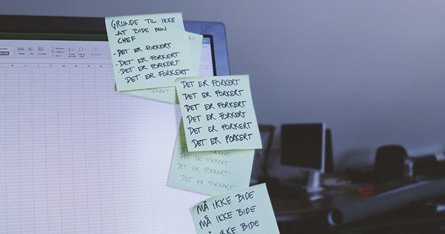 GRUNDE TIL IKKE
AT BIDE DIN
CHEF
· DET ER FORKERT
· DET ER FORKERT
DET ER FORKERT
DET ER FORKERT
DET ER FORKERT
DET ER FORKERT
DET ER FORKERT
DET ER FORKERT
DET ER FORKERT
DET ER FORKERT
DET ER FORKERT
DET ER FORKERT
DET ER FORKERT
MÅ IKKE BIDE
MÅ IKKE BIDE
MÅ IKKE BIDE